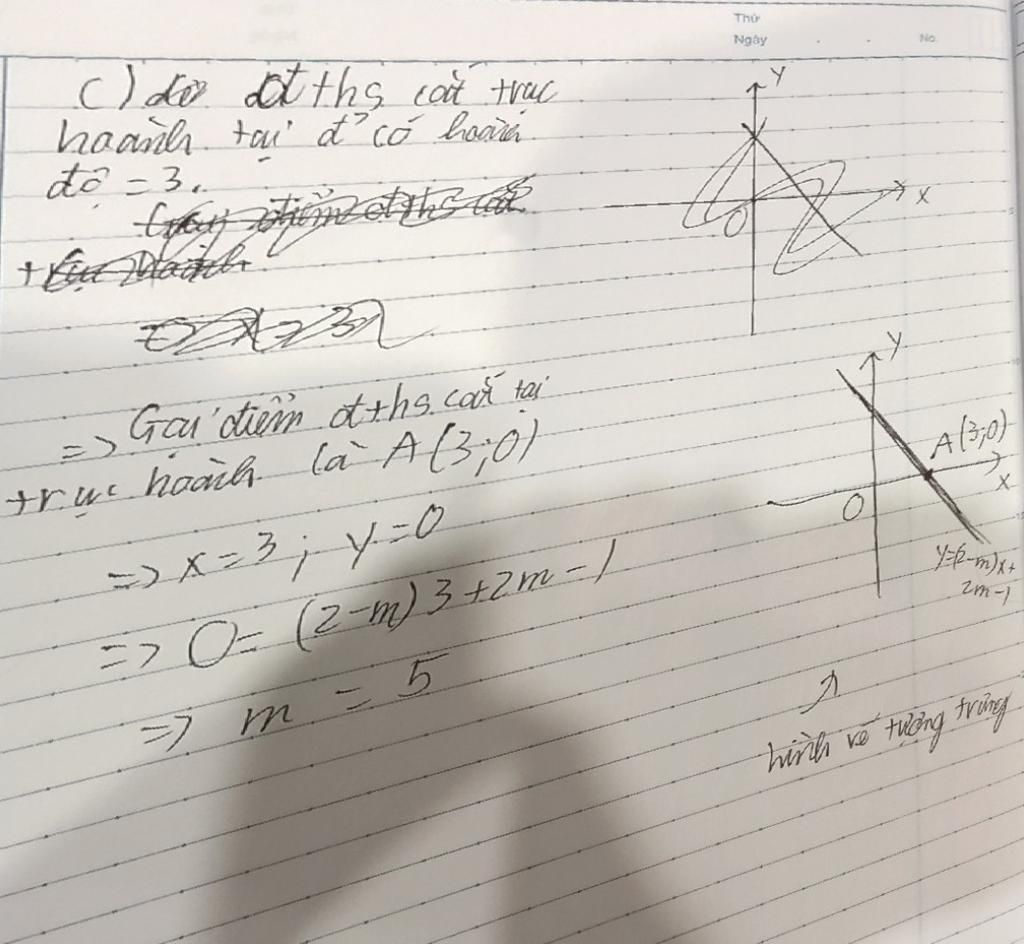 Thứ
Ngày
No.
c) do đths cắt trục
hoành tại đ' có hoành
độ = 3.
=> Gọi điểm đths cắt tại
trục hoành là A(3;0)
=> x = 3 ; y = 0
=> 0 = (2-m)3+2m-1
=> m = 5
y
x
O
y
A(3;0)
x
O
y=(2-m)x+
2m-1
hình vẽ tượng trưng